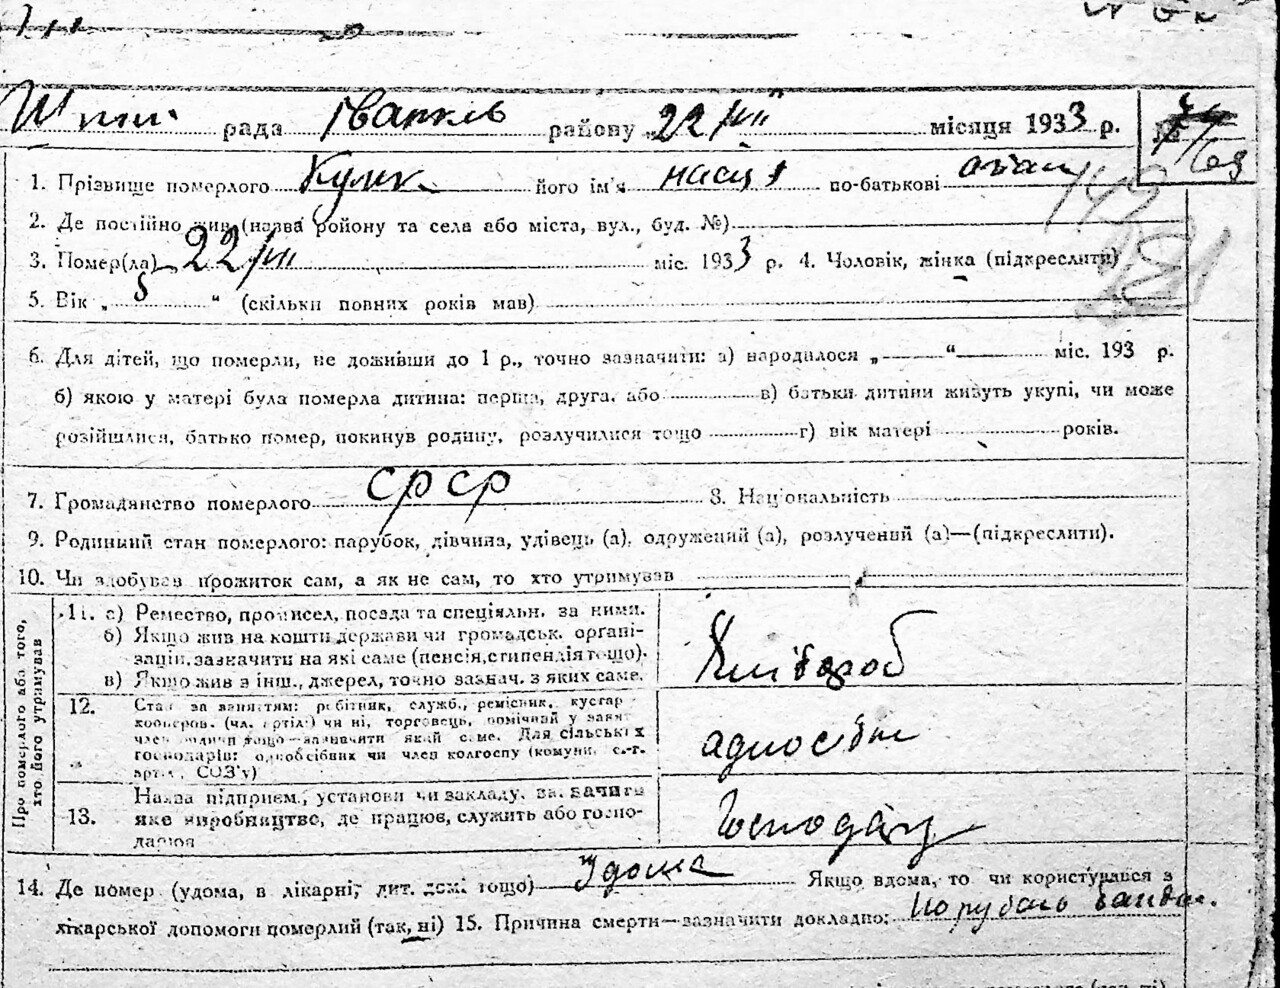 рада Іванків району 22/VIII місяця 1933 р. №
1. Прізвище померлого Кулик його ім'я по-батькові
2. Де постійно жив (назва району та села або міста, вул., буд. №)
3. Помер(ла) 22/VIII міс. 1933 р. 4. Чоловік, жінка (підкреслити)
5. Вік „ “ (скільки повних років мав)
6. Для дітей, що померли, не доживши до 1 р., точно зазначити: а) народилося „ “ міс. 193 р.
б) якою у матері була померла дитина: перша, друга, або в) батьки дитини живуть укупі, чи може
розійшлися, батько помер, покинув родину, розлучилися тощо г) вік матері років.
7. Громадянство померлого СРСР 8. Національність
9. Родинний стан померлого: парубок, дівчина, удівець (а), одружений (а), розлучений (а)—(підкреслити).
10. Чи здобував прожиток сам, а як не сам, то хто утримував
Про померлого або того, хто його утримував
11. а) Ремество, промисел, посада та спеціяльн. за ними.
б) Якщо жив на кошти держави чи громадськ. органі-
зацій, зазначити на які саме (пенсія, стипендія тощо).
в) Якщо жив з інш., джерел, точно зазнач. з яких саме.
Хлібороб
12. Стан за заняттям: робітник, служб., ремісник, кустар
кооперов. (чл. артілі) чи ні, торговець, помічний у занят
член родини якщо—зазначити який саме. Для сільських
господарів: одноосібник чи член колгоспу (комуни, с.-г.
артіл., СОЗ'у)
13. Назва підприєм., установи чи закладу, зазначити
яке виробництво, де працює, служить або госпо-
дарює
14. Де помер (удома, в лікарні, дит. домі тощо) Удома Якщо вдома, то чи користувався з
лікарської допомоги померлий (так, ні) 15. Причина смерти—зазначити докладно: